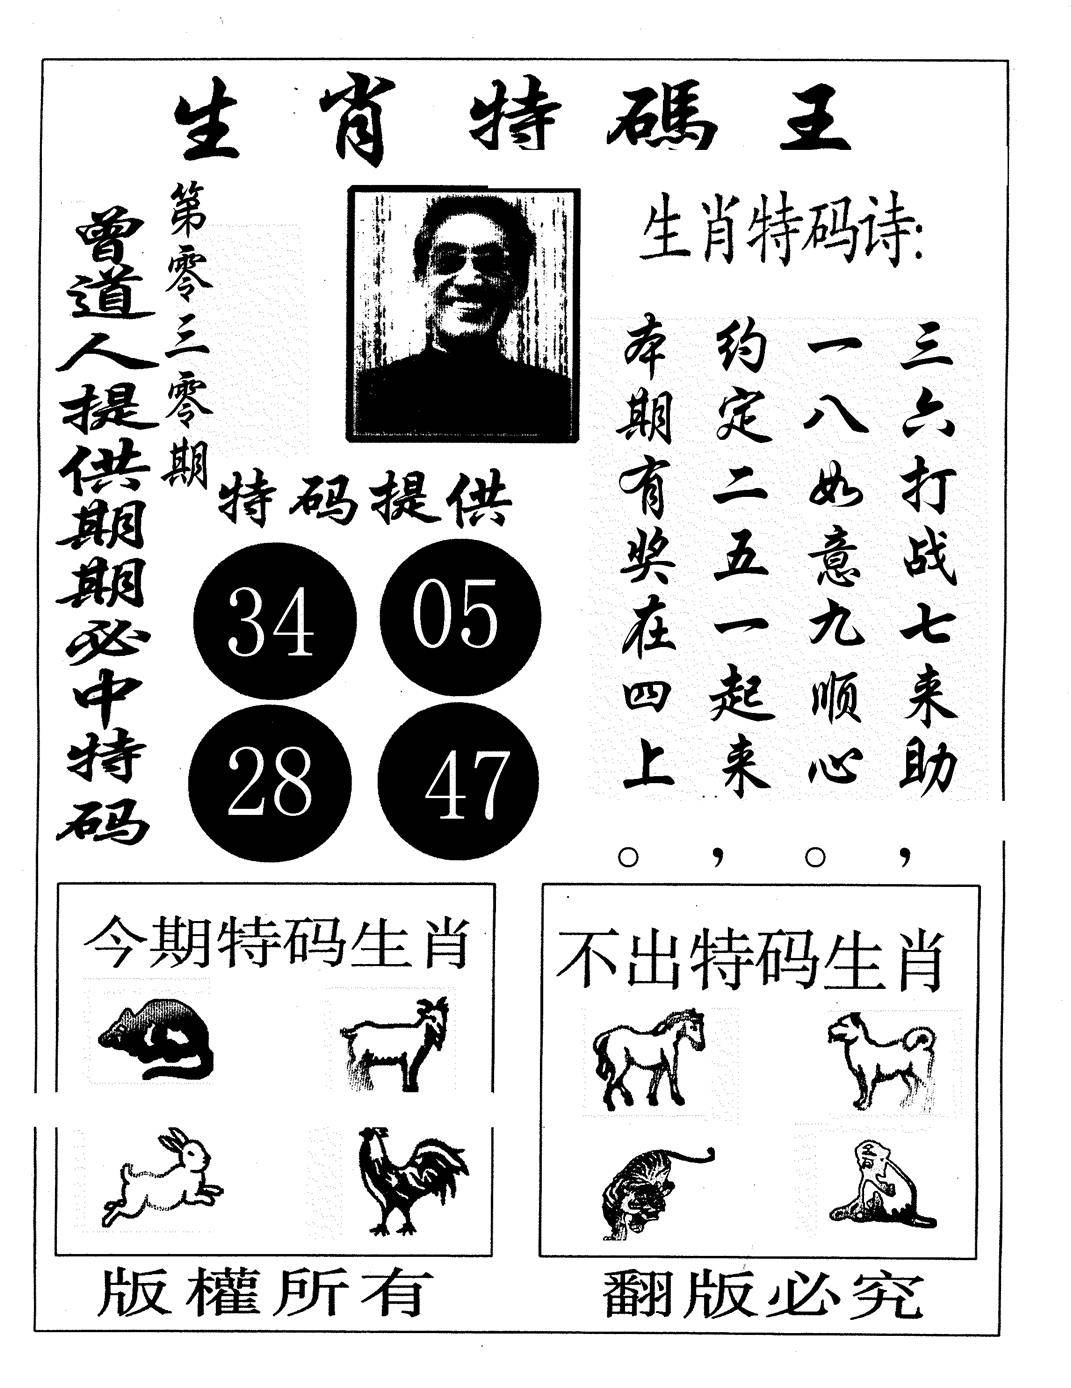 生肖特碼王
第零三零期
曾道人提供期期必中特码
生肖特码诗:
三六打战七来助，
一八如意九顺心。
约定二五一起来，
本期有奖在四上。
特码提供
34 05
28 47
今期特码生肖
不出特码生肖
版權所有
翻版必究